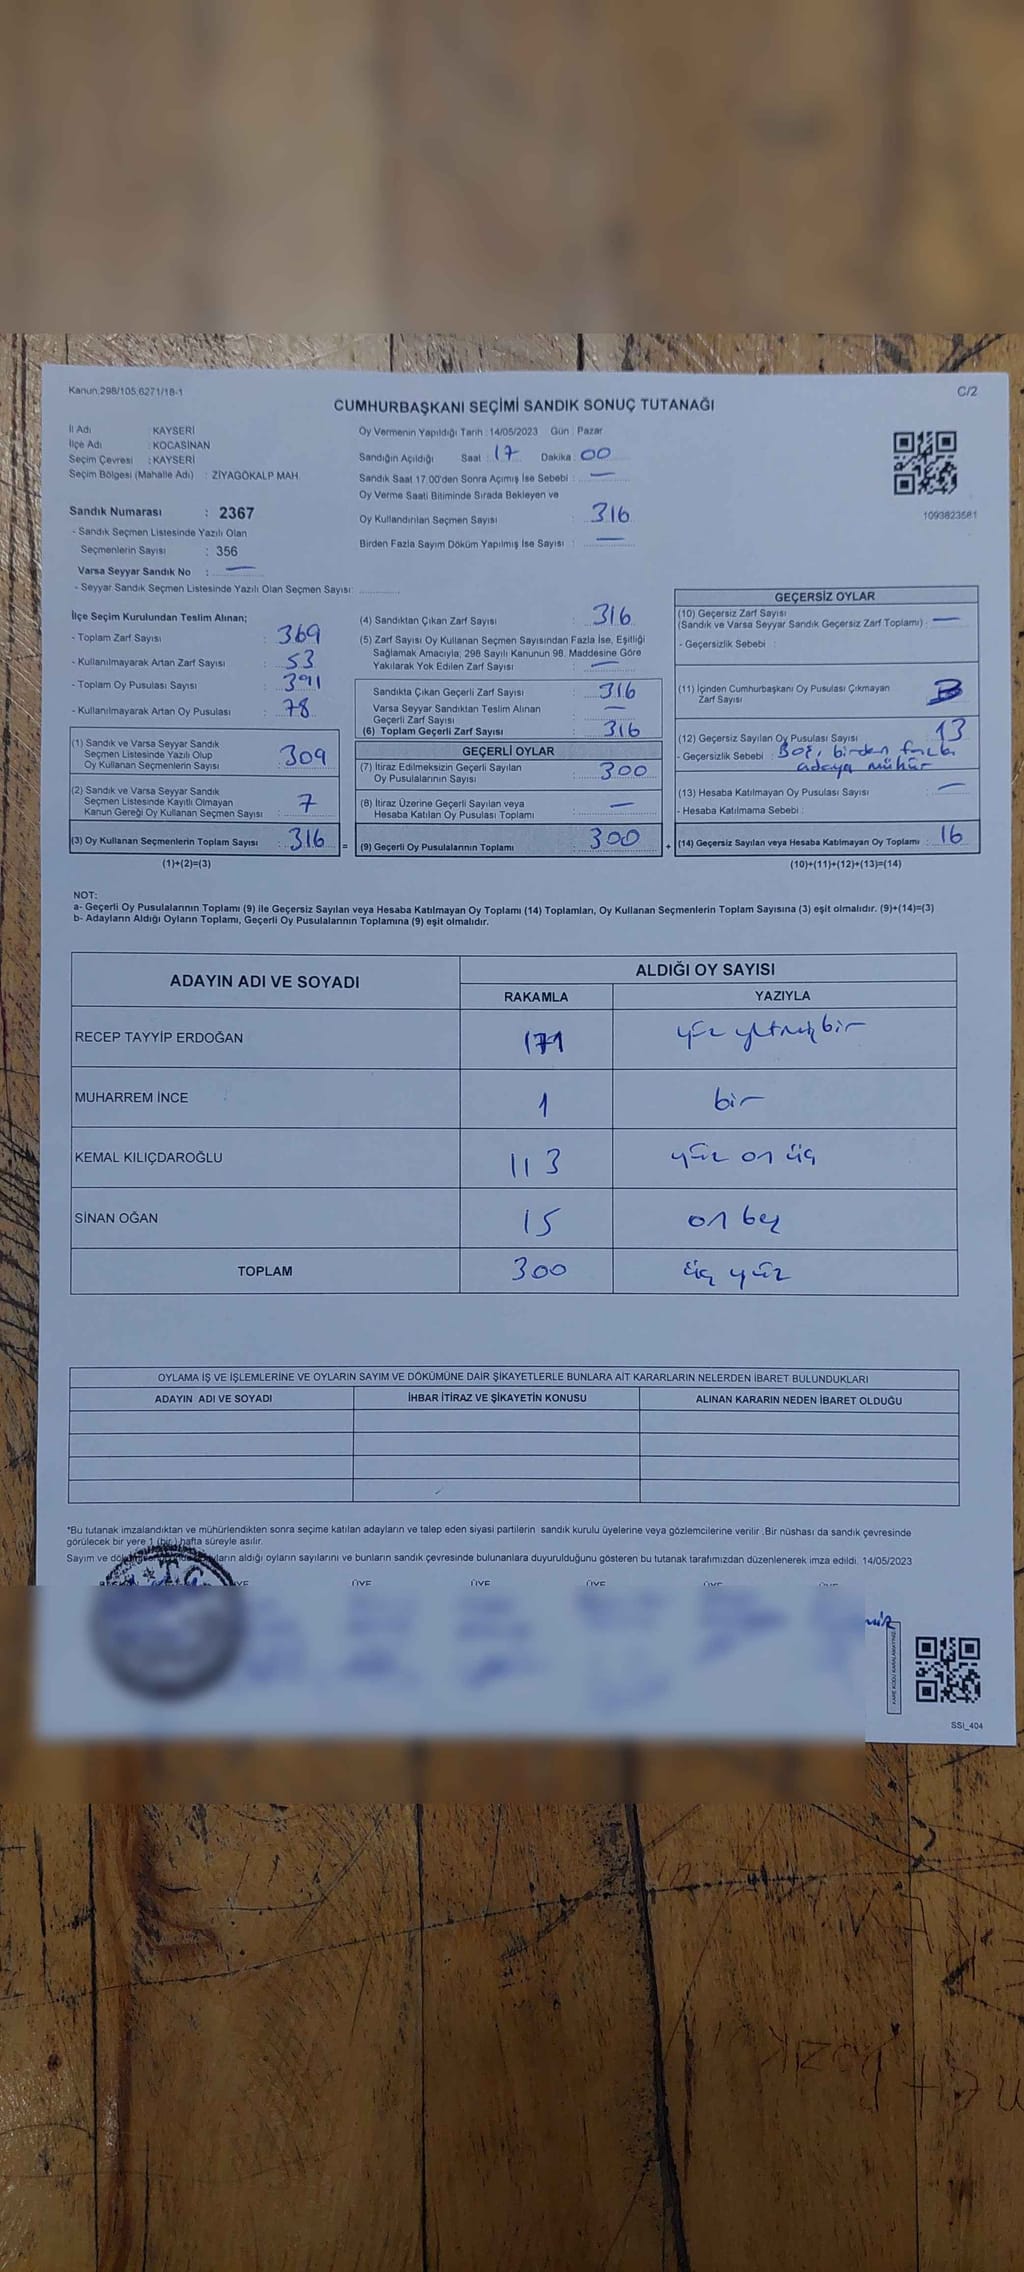 Kanun;298/105,6271/18-1
C/2
CUMHURBAŞKANI SEÇİMİ SANDIK SONUÇ TUTANAĞI
İl Adı : KAYSERİ
İlçe Adı : KOCASİNAN
Seçim Çevresi : KAYSERİ
Seçim Bölgesi (Mahalle Adı) : ZİYAGÖKALP MAH.
Sandık Numarası : 2367
- Sandık Seçmen Listesinde Yazılı Olan
Seçmenlerin Sayısı : 356
Varsa Seyyar Sandık No : —
- Seyyar Sandık Seçmen Listesinde Yazılı Olan Seçmen Sayısı: ............
Oy Vermenin Yapıldığı Tarih : 14/05/2023 Gün : Pazar
Sandığın Açıldığı Saat : 17 Dakika : 00
Sandık Saat 17.00'den Sonra Açımış İse Sebebi : —
Oy Verme Saati Bitiminde Sırada Bekleyen ve
Oy Kullandırılan Seçmen Sayısı : 316
Birden Fazla Sayım Döküm Yapılmış İse Sayısı : —
1093823581
İlçe Seçim Kurulundan Teslim Alınan;
- Toplam Zarf Sayısı : 369
- Kullanılmayarak Artan Zarf Sayısı : 53
- Toplam Oy Pusulası Sayısı : 391
- Kullanılmayarak Artan Oy Pusulası : 78
(1) Sandık ve Varsa Seyyar Sandık
Seçmen Listesinde Yazılı Olup
Oy Kullanan Seçmenlerin Sayısı : 309
(2) Sandık ve Varsa Seyyar Sandık
Seçmen Listesinde Kayıtlı Olmayan
Kanun Gereği Oy Kullanan Seçmen Sayısı : 7
(3) Oy Kullanan Seçmenlerin Toplam Sayısı : 316 =
(1)+(2)=(3)
(4) Sandıktan Çıkan Zarf Sayısı : 316
(5) Zarf Sayısı Oy Kullanan Seçmen Sayısından Fazla İse, Eşitliği
Sağlamak Amacıyla; 298 Sayılı Kanunun 98. Maddesine Göre
Yakılarak Yok Edilen Zarf Sayısı : —
Sandıkta Çıkan Geçerli Zarf Sayısı : 316
Varsa Seyyar Sandıktan Teslim Alınan
Geçerli Zarf Sayısı : —
(6) Toplam Geçerli Zarf Sayısı : 316
GEÇERLİ OYLAR
(7) İtiraz Edilmeksizin Geçerli Sayılan
Oy Pusulalarının Sayısı : 300
(8) İtiraz Üzerine Geçerli Sayılan veya
Hesaba Katılan Oy Pusulası Toplamı : —
(9) Geçerli Oy Pusulalarının Toplamı : 300 +
GEÇERSİZ OYLAR
(10) Geçersiz Zarf Sayısı
(Sandık ve Varsa Seyyar Sandık Geçersiz Zarf Toplamı) : —
- Geçersizlik Sebebi :
(11) İçinden Cumhurbaşkanı Oy Pusulası Çıkmayan
Zarf Sayısı
(12) Geçersiz Sayılan Oy Pusulası Sayısı : 13
- Geçersizlik Sebebi : Boş, birden fazla
adaya mühür
(13) Hesaba Katılmayan Oy Pusulası Sayısı : —
- Hesaba Katılmama Sebebi :
(14) Geçersiz Sayılan veya Hesaba Katılmayan Oy Toplamı : 16
(10)+(11)+(12)+(13)=(14)
NOT:
a- Geçerli Oy Pusulalarının Toplamı (9) ile Geçersiz Sayılan veya Hesaba Katılmayan Oy Toplamı (14) Toplamları, Oy Kullanan Seçmenlerin Toplam Sayısına (3) eşit olmalıdır. (9)+(14)=(3)
b- Adayların Aldığı Oyların Toplamı, Geçerli Oy Pusulalarının Toplamına (9) eşit olmalıdır.
ADAYIN ADI VE SOYADI
ALDIĞI OY SAYISI
RAKAMLA YAZIYLA
RECEP TAYYİP ERDOĞAN 171 yüz yetmiş bir
MUHARREM İNCE 1 bir
KEMAL KILIÇDAROĞLU 113 yüz on üç
SİNAN OĞAN 15 on beş
TOPLAM 300 üç yüz
OYLAMA İŞ VE İŞLEMLERİNE VE OYLARIN SAYIM VE DÖKÜMÜNE DAİR ŞİKAYETLERLE BUNLARA AİT KARARLARIN NELERDEN İBARET BULUNDUKLARI
ADAYIN ADI VE SOYADI İHBAR İTİRAZ VE ŞİKAYETİN KONUSU ALINAN KARARIN NEDEN İBARET OLDUĞU
*Bu tutanak imzalandıktan ve mühürlendikten sonra seçime katılan adayların ve talep eden siyasi partilerin sandık kurulu üyelerine veya gözlemcilerine verilir .Bir nüshası da sandık çevresinde
görülecek bir yere 1 (bir) hafta süreyle asılır.
Sayım ve aldığı oyların sayılarını ve bunların sandık çevresinde bulunanlara duyurulduğunu gösteren bu tutanak tarafımızdan düzenlenerek imza edildi. 14/05/2023
ÜYE ÜYE ÜYE ÜYE ÜYE
SSI_404